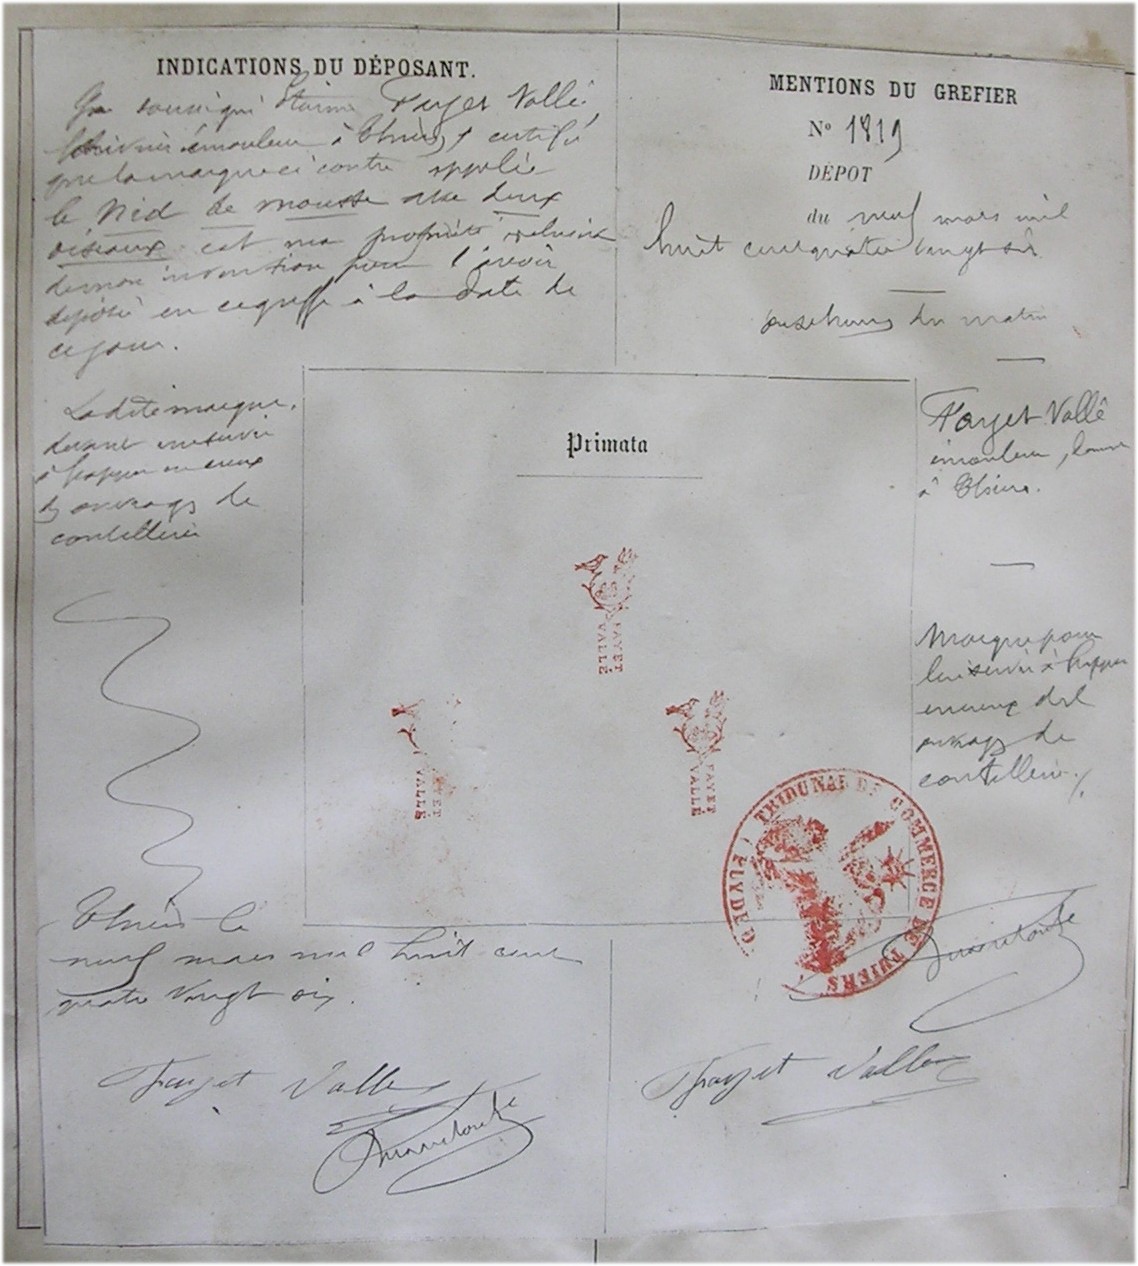 INDICATIONS DU DÉPOSANT.
Je soussigné Fayet Vallé,
émouleur à Thiers, certifie
que la marque ci contre appelée
le Nid de mousse avec deux
oiseaux est ma propriété exclusive
de mon invention pour l'avoir
déposé en ce greffe à la date de
ce jour.
La dite marque,
devant me servir
à frapper en creux
ouvrages de
coutellerie
Thiers le
neuf mars mil huit cent
quatre vingt six.
Fayet Vallé
MENTIONS DU GREFIER
No 1819
DÉPOT
du neuf mars mil
huit cent quatre vingt six
onze heures du matin
Primata
FAYET
VALLÉ
FAYET
VALLÉ
FAYET
VALLÉ
Fayet Vallé
émouleur,
à Thiers.
Marque pour
lui servir à frapper
en creux des
ouvrages de
coutellerie.
TRIBUNAL DE COMMERCE DE THIERS
(PUY DE D
Fayet Vallé